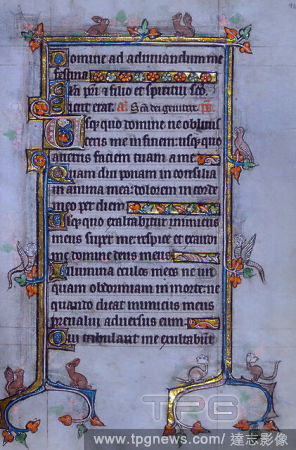 Domine ad adiuvandum me
festina
Gl'a pri & filio et spiritui sco
Sicut erat. a. Sca dei genitrix. ps.
Usq;quo domine ne oblivis
ceris me in finem: usq;quo
avertis faciem tuam a me
Quam diu ponam consilia
in anima mea: dolorem in corde
meo per diem
Usq;quo exaltabitur inimicus
meus super me: respice et exaudi
me domine deus meus
Illumina oculos meos ne un
quam obdormiam in morte: ne
quando dicat inimicus meus
prevalui adversus eum
Qui tribulant me exultabunt
TPG
www.tpgnews.com / 達志影像